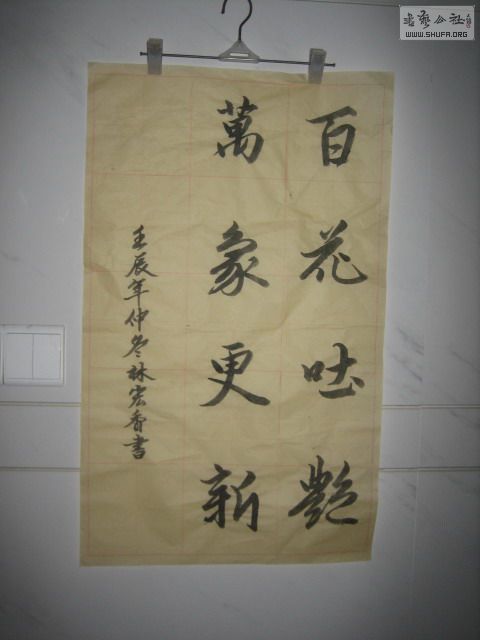 百花吐艷
萬象更新
壬辰年仲冬林宏香書
書藝公社
WWW.SHUFA.ORG